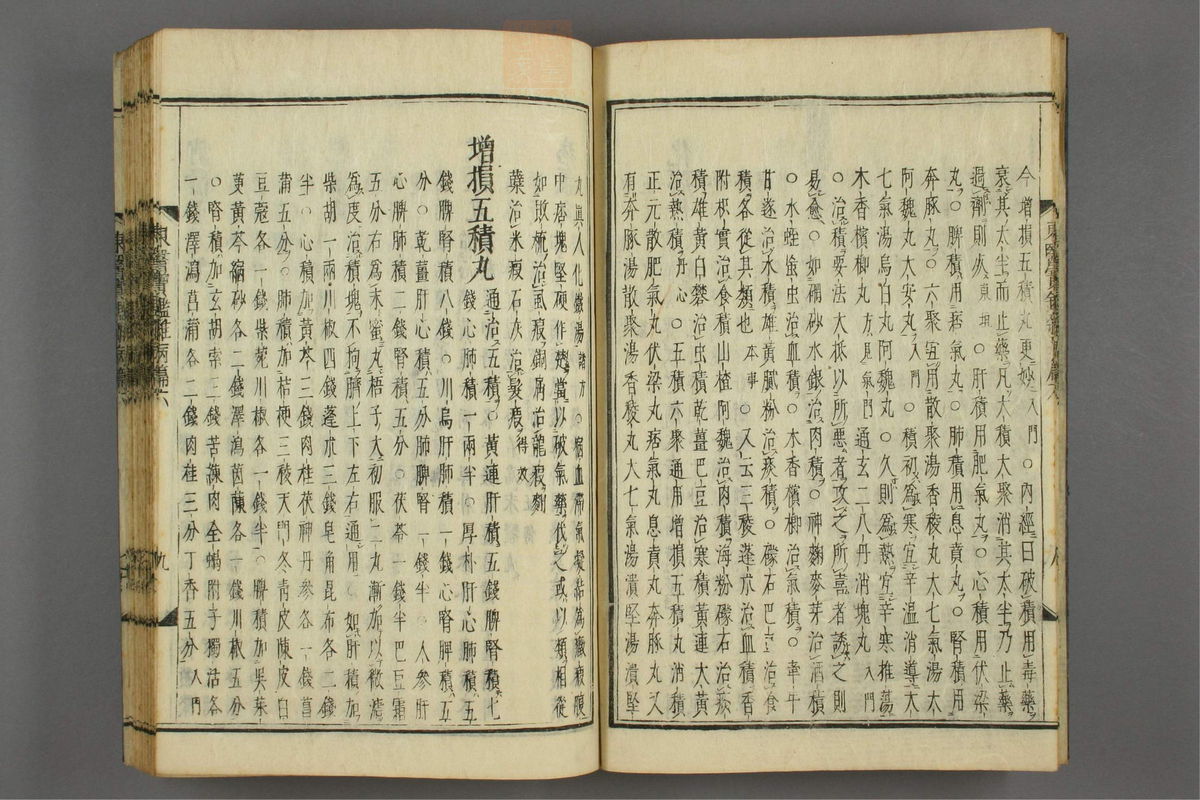 今增損五積丸更妙入門○內經曰破積用毒藥
衰其太半而止藥凡大積大聚消其太半乃止藥
過劑則死東垣○肝積用肥氣丸○心積用伏梁
丸○脾積用痞氣丸○肺積用息賁丸○腎積用
奔豚丸○六聚宜用散聚湯香稜丸大七氣湯大
阿魏丸太安丸入門○積初爲寒宜辛溫消導大
七氣湯烏白丸阿魏丸○久則爲熱宜辛寒推蕩
木香檳榔丸方見氣門通玄二八丹消塊丸入門
○治積要法大抵以所惡者攻之所喜者誘之則
易愈○如硇砂水銀治肉積○神麴麥芽治酒積
○水蛭䖟虫治血積○木香檳榔治氣積○牽牛
甘遂治水積雄黃膩粉治痰積○礞石巴豆治食
積各從其類也本事○又云三稜蓬朮治血積香
附枳實治食積山楂阿魏治肉積海粉礞石治痰
積雄黃白礬治虫積乾薑巴豆治寒積黃連大黃
治熱積丹心○五積六聚通用增損五積丸消積
正元散肥氣丸伏梁丸痞氣丸息賁丸奔豚丸又
有奔豚湯散聚湯香稜丸大七氣湯潰堅湯潰堅
丸眞人化癥湯諸方○瘀血滯氣凝結爲癥瘕腹
中痞塊堅硬作楚當以破氣藥伐之或以類相從
如敗梳治虱瘕銅屑治龍瘕麴
蘖治米瘕石灰治髮瘕得效
增損五積丸
通治五積○黃連肝積五錢脾腎積七
錢心肺積一兩半○厚朴肝心肺積五
錢脾腎積八錢○川烏肝肺積一錢心腎脾積五
分○乾薑肝心積五分肺脾腎一錢半○人參肝
心脾肺積二錢腎積五分○茯苓一錢半巴豆霜
五分右爲末蜜丸梧子大初服二丸漸加以微溏
爲度治積塊不拘臍上下左右通用○如肝積加
柴胡一兩川椒四錢蓬朮三錢皂角昆布各二錢
半○心積加黃芩三錢肉桂茯神丹參各一錢菖
蒲五分○肺積加桔梗三稜天門冬靑皮陳皮白
豆蔻各一錢紫菀川椒各一錢半○脾積加吳茱
萸黃芩縮砂各二錢澤瀉茵蔯各一錢川椒五分
○腎積加玄胡索三錢苦練肉全蝎附子獨活各
一錢澤瀉菖蒲各二錢肉桂三分丁香五分入門